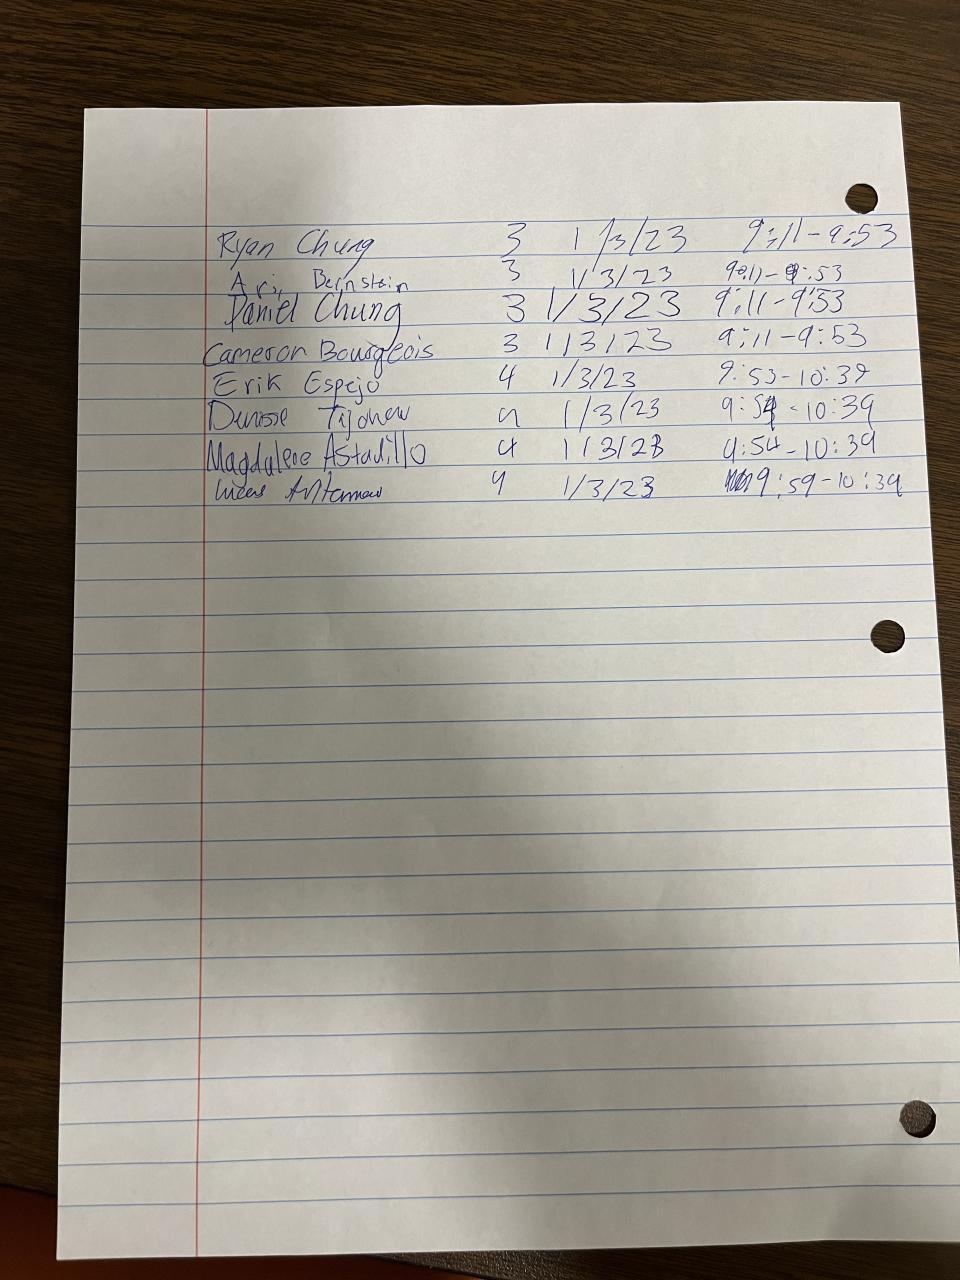 Ryan Chung 3 1/3/23 9:11-9:53
Ari Bernstein 3 1/3/23 9:11-9:53
Daniel Chung 3 1/3/23 9:11-9:53
Cameron Bourgeois 3 1/3/23 9:11-9:53
Erik Espejo 4 1/3/23 9:53-10:39
4 1/3/23 9:54-10:39
Magdalene Astadillo 4 1/3/23 9:54-10:39
Lucas 4 1/3/23 9:59-10:39